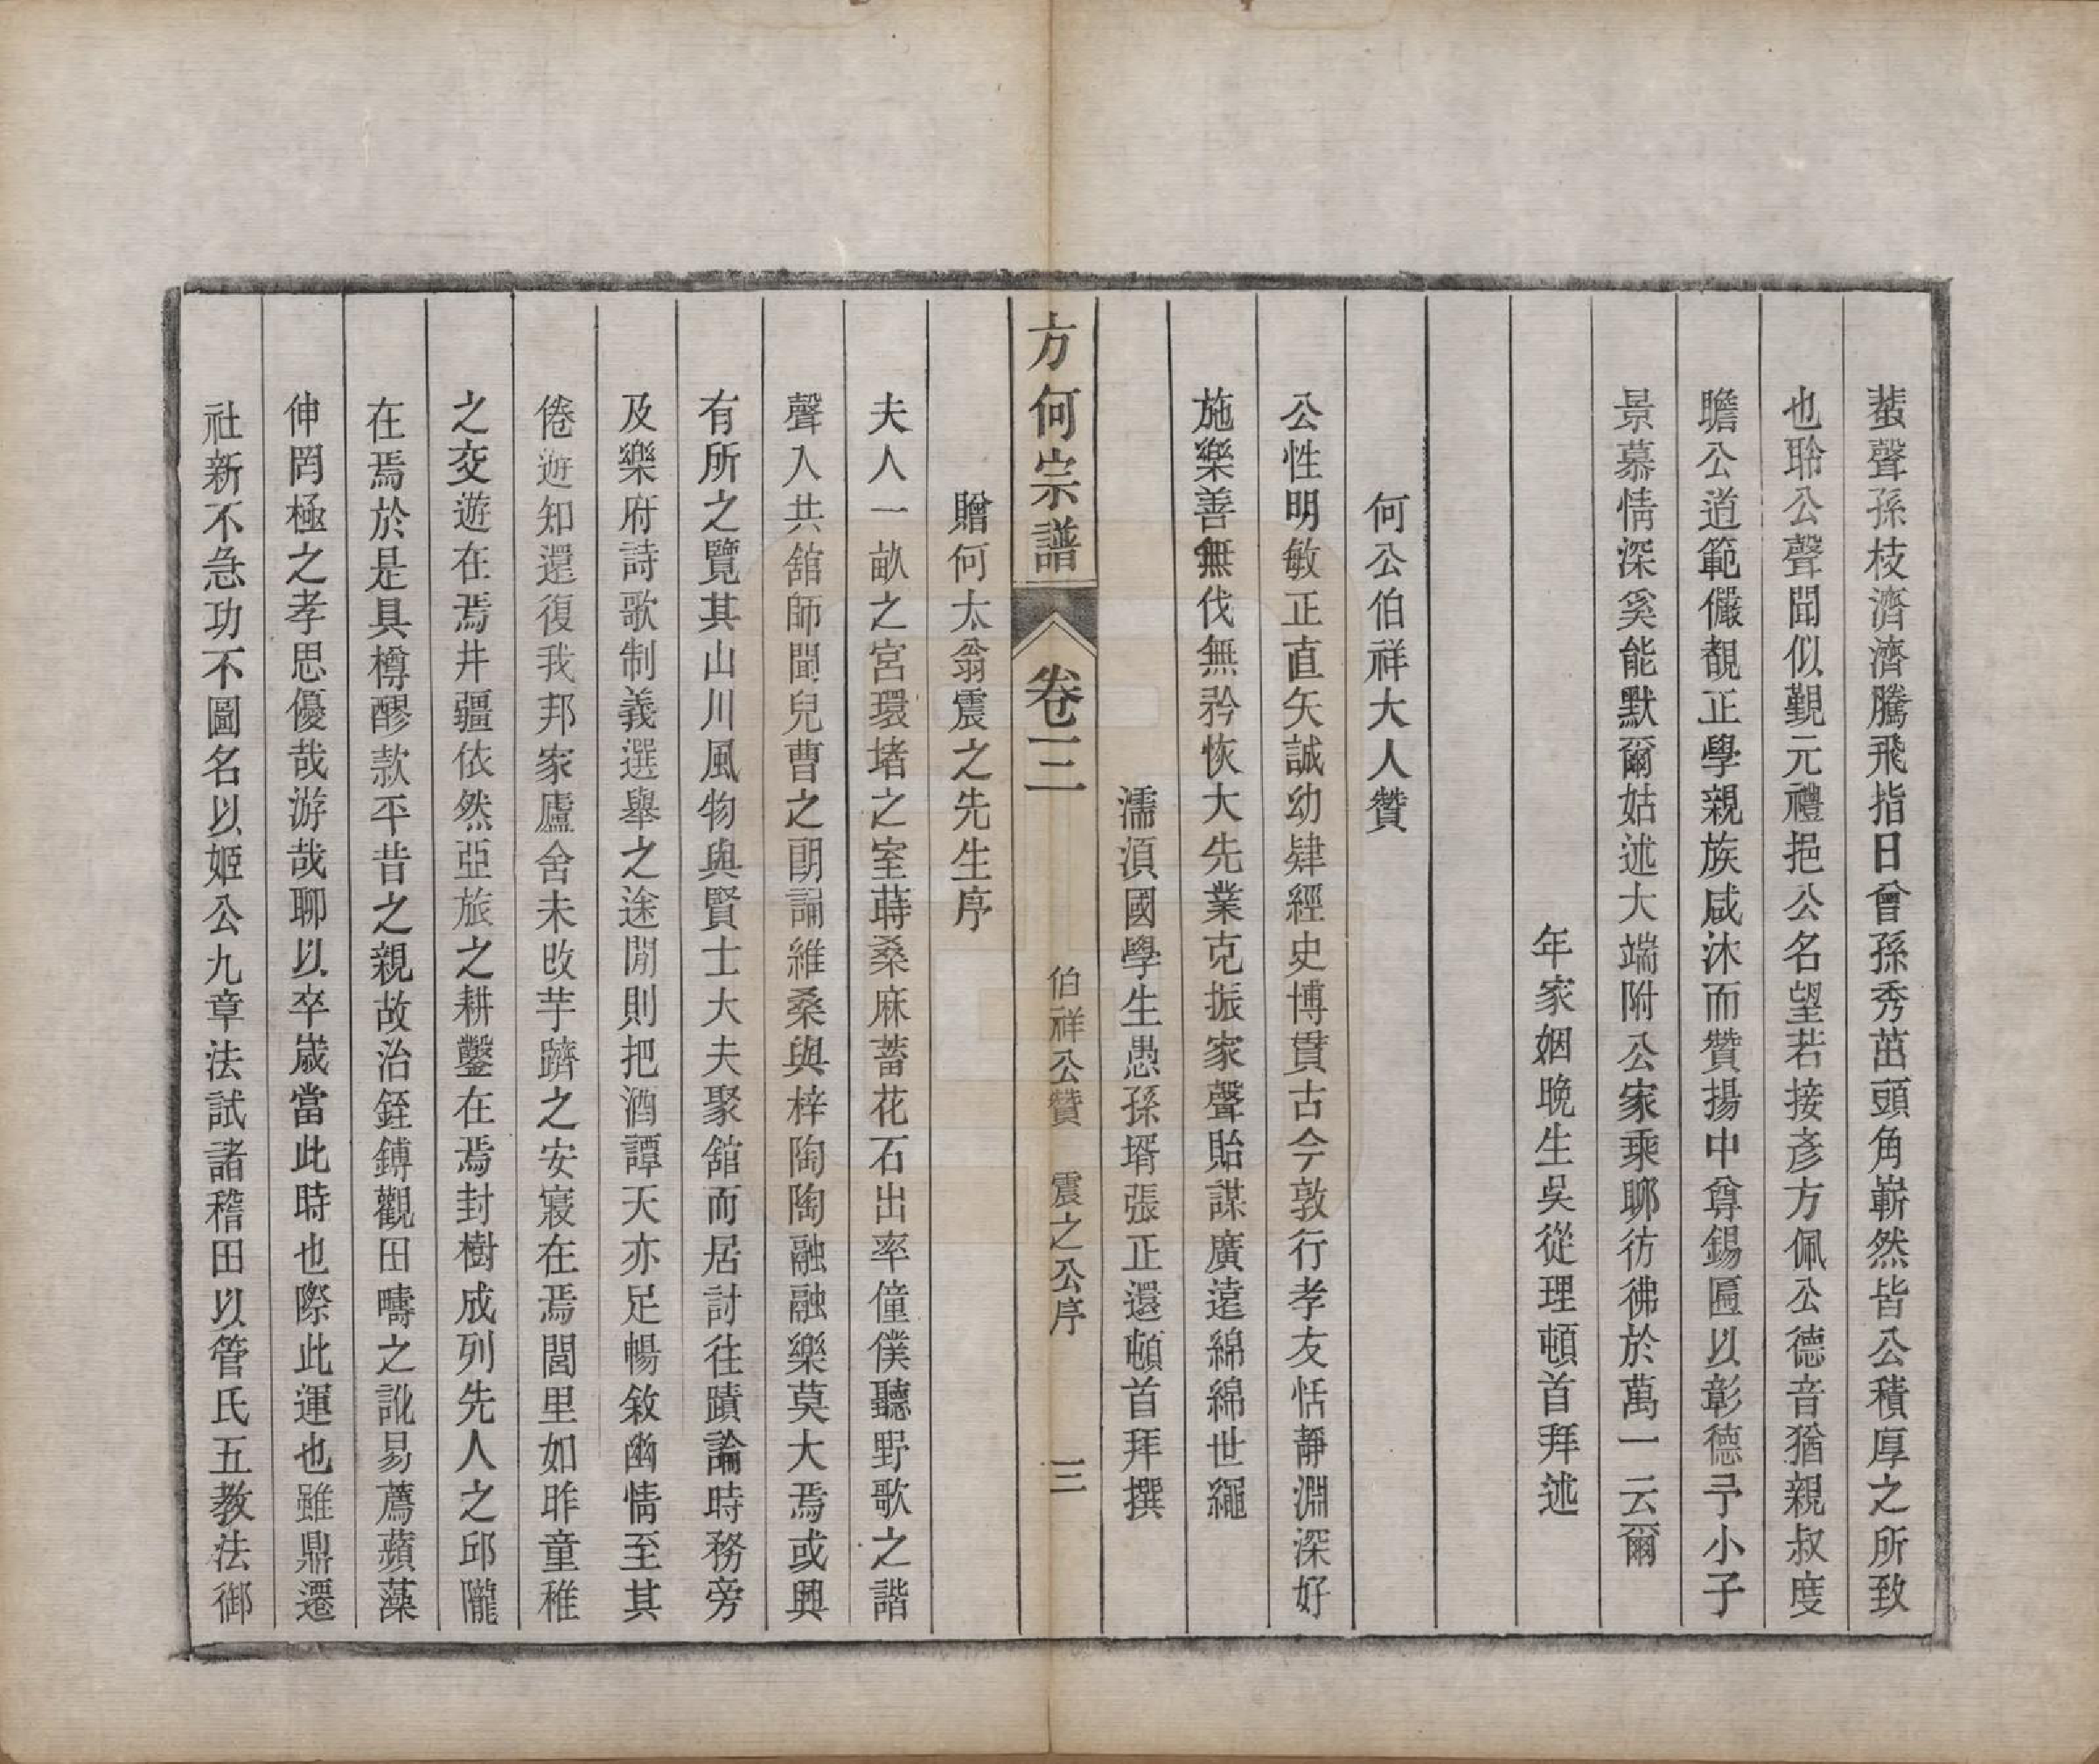 蜚聲孫枝濟濟騰飛指日曾孫秀茁頭角嶄然皆公積厚之所致
也聆公聲聞似覲元禮挹公名望若接彥方佩公德音猶親叔度
瞻公道範儼覩正學親族咸沐而贊揚中尊錫匾以彰德予小子
景慕情深奚能默爾姑述大端附公家乘聊彷彿於萬一云爾
年家姻晚生吳從理頓首拜述
何公伯祥大人贊
公性明敏正直矢誠幼肄經史博貫古今敦行孝友恬靜淵深好
施樂善無伐無矜恢大先業克振家聲貽謀廣遠綿綿世繩
濡湏國學生愚孫壻張正還頓首拜撰
方何宗譜
卷三
伯祥公贊　震之公序
三
贈何太翁震之先生序
夫人一畝之宮環堵之室蒔桑麻蓄花石出率僮僕聽野歌之諧
聲入共舘師聞兒曹之朗誦維桑與梓陶陶融融樂莫大焉或興
有所之覽其山川風物與賢士大夫聚舘而居討往蹟論時務旁
及樂府詩歌制義選舉之途閒則把酒譚天亦足暢敘幽情至其
倦遊知還復我邦家廬舍未改芋躋之安寢在焉閭里如昨童稚
之交遊在焉井疆依然亞旅之耕鑿在焉封樹成列先人之邱隴
在焉於是具樽醪款平昔之親故治銍鎛觀田疇之訛易薦蘋藻
伸罔極之孝思優哉游哉聊以卒嵗當此時也際此運也雖鼎遷
社新不急功不圖名以姬公九章法試諸稽田以管氏五教法御